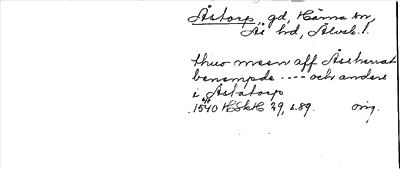 Åstorp, gd, Härna sn,
Ås hd, Älvsb. l.
thuo meen aff Åssherrat
benempde ---- och anders
i Åstatorp
1540 HSkH 29, s. 89. orig.